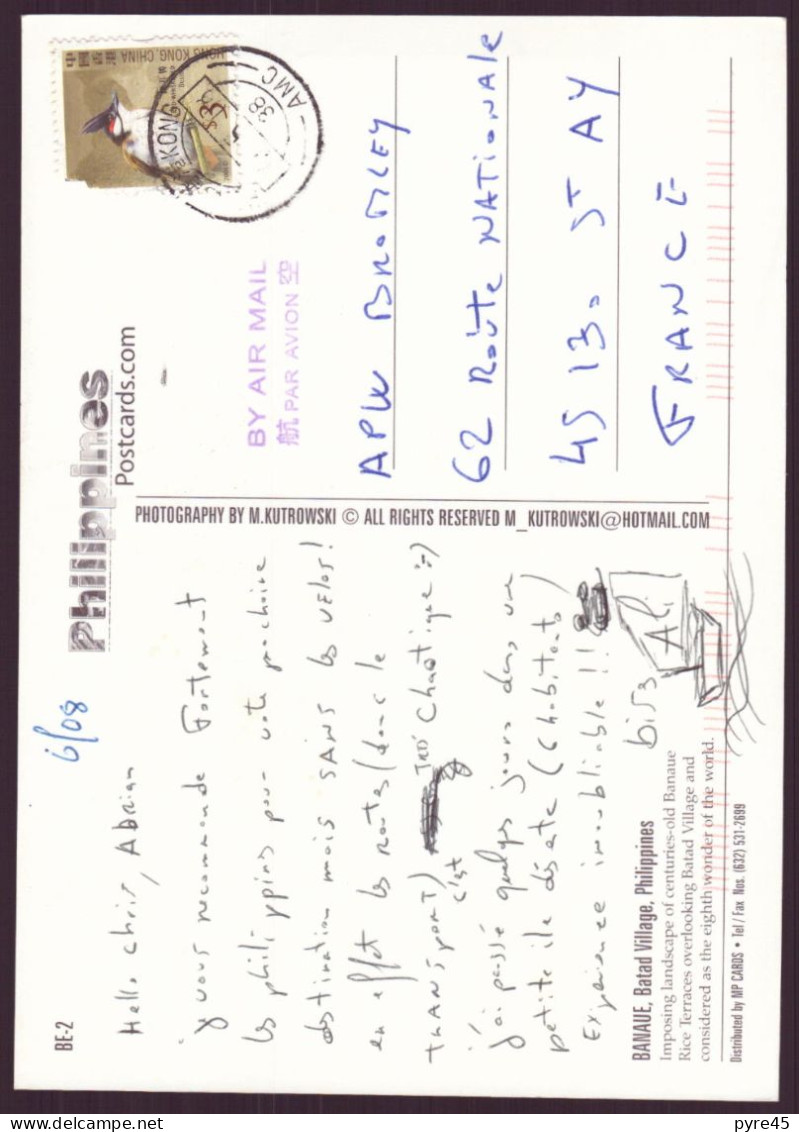 BE-2
6/08
Philippines
Postcards.com
Hello Chris, Adrian
je vous recommande Fortement
les philippines pour votre prochaine
destination mais SANS les VELOS!
en effet les routes (donc le
TRANSPORT) c'est TRES Chaotique :-)
j'ai passé quelques jours dans une
petite ile déserte (6 habitants)
Experience inoubliable!!
bises
Ali
BANAUE, Batad Village, Philippines
Imposing landscape of centuries-old Banaue
Rice Terraces overlooking Batad Village and
considered as the eighth wonder of the world.
Distributed by MP CARDS • Tel/Fax Nos. (632) 531-2699
PHOTOGRAPHY BY M.KUTROWSKI © ALL RIGHTS RESERVED M_KUTROWSKI@HOTMAIL.COM
中國香港 HONG KONG, CHINA
KONG
AMC
38
BY AIR MAIL
航 PAR AVION 空
62 Route NATIONALE
45130 ST AY
FRANCE
pyre45